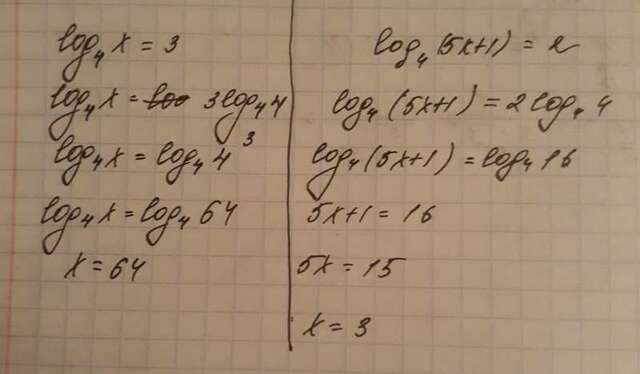 log₄ x = 3
log₄ x = 3 log₄ 4
log₄ x = log₄ 4³
log₄ x = log₄ 64
x = 64
log₄ (5x+1) = 2
log₄ (5x+1) = 2 log₄ 4
log₄ (5x+1) = log₄ 16
5x+1 = 16
5x = 15
x = 3